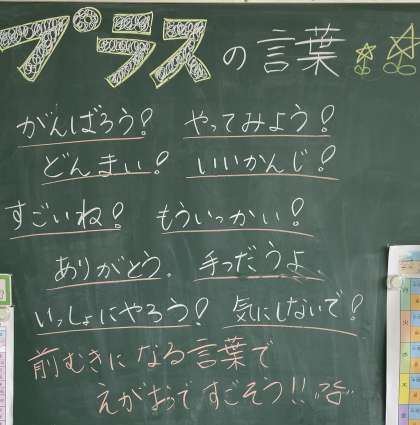 プラスの言葉
がんばろう! やってみよう!
どんまい! いいかんじ!
すごいね! もういっかい!
ありがとう. 手つだうよ.
いっしょにやろう! 気にしないで!
前むきになる言葉で
えがおで すごそう!!